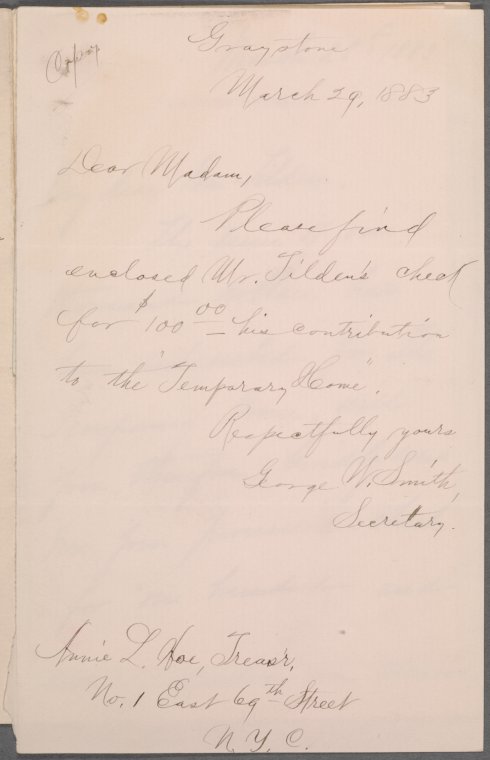 Graystone
(Copy)
March 29, 1883
Dear Madam,
Please find
enclosed Mr. Tilden's check
for $100 00 his contribution
to the "Temporary Home".
Respectfully yours
George W. Smith,
Secretary.
Annie L. Hoe, Treas'r,
No. 1 East 69th Street
N. Y. C.